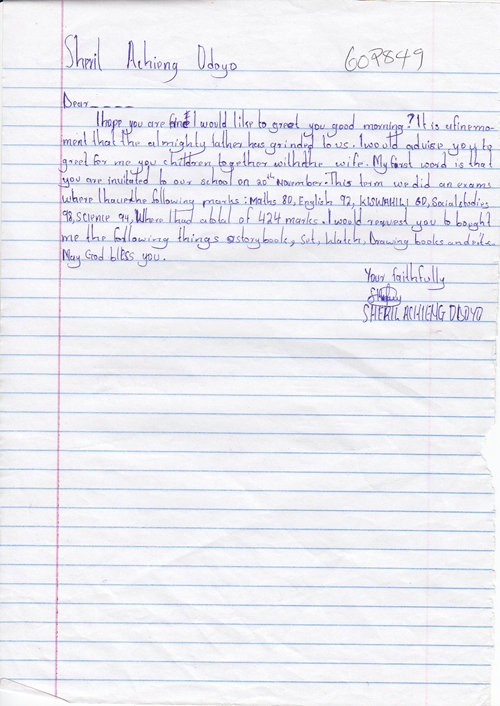 Sheril Achieng Odoyo 602849
Dear____
I hope you are fine I would like to greet you good morning? It is a fine mo-
ment that the almighty father has grinded to us. I would advise you to
greet for me you children together with the wife. My first word is that
you are invitated to our school on 20th November. This term we did an exams
where I have the following marks: Maths 80, English 92, KISWAHILI 60, Social studies
98, Science 94, Where I had a total of 424 marks. I would request you to bought
me the following things storybooks, Set, Watch, Drawing books and
May God bless you.
Your faithfully
SHERIL ACHIENG ODOYO